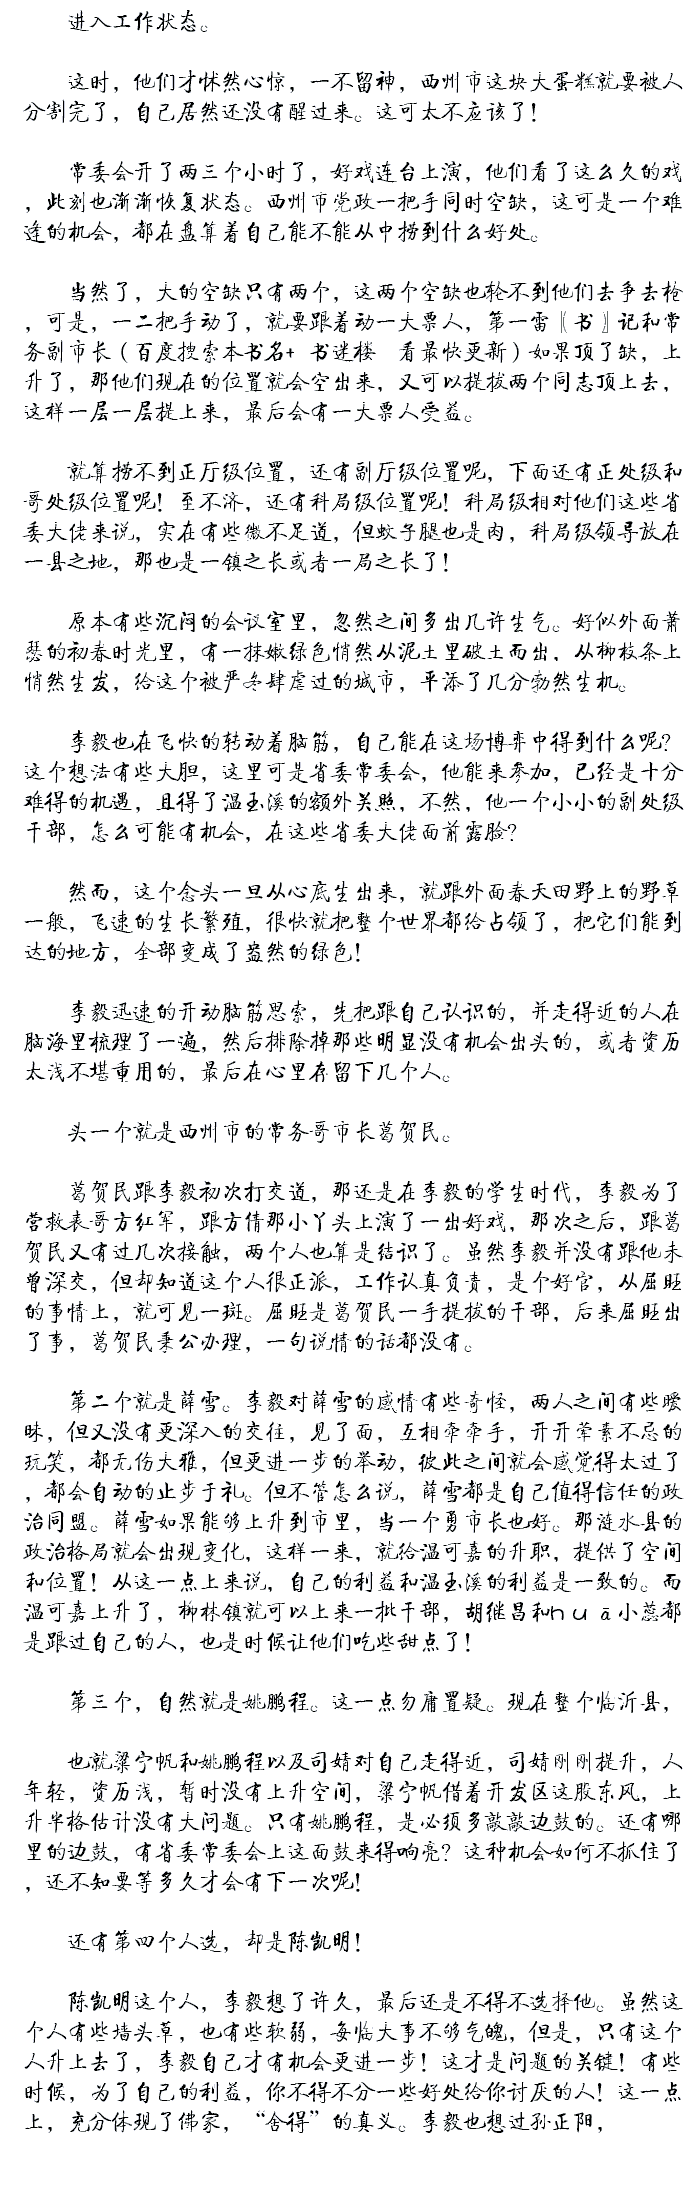 进入工作状态。
这时，他们才怵然心惊，一不留神，西州市这块大蛋糕就要被人
分割完了，自己居然还没有醒过来。这可太不应该了！
常委会开了两三个小时了，好戏连台上演，他们看了这么久的戏
，此刻也渐渐恢复状态。西州市党政一把手同时空缺，这可是一个难
逢的机会，都在盘算着自己能不能从中捞到什么好处。
当然了，大的空缺只有两个，这两个空缺也轮不到他们去争去枪
，可是，一二把手动了，就要跟着动一大票人，第一雷〖书〗记和常
务副市长（百度搜索本书名+ 书迷楼 看最快更新）如果顶了缺，上
升了，那他们现在的位置就会空出来，又可以提拔两个同志顶上去，
这样一层一层提上来，最后会有一大票人受益。
就算捞不到正厅级位置，还有副厅级位置呢，下面还有正处级和
哥处级位置呢！至不济，还有科局级位置呢！科局级相对他们这些省
委大佬来说，实在有些微不足道，但蚊子腿也是肉，科局级领导放在
一县之地，那也是一镇之长或者一局之长了！
原本有些沉闷的会议室里，忽然之间多出几许生气。好似外面萧
瑟的初春时光里，有一抹嫩绿色悄然从泥土里破土而出，从柳枝条上
悄然生发，给这个被严冬肆虐过的城市，平添了几分勃然生机。
李毅也在飞快的转动着脑筋，自己能在这场博弈中得到什么呢？
这个想法有些大胆，这里可是省委常委会，他能来参加，已经是十分
难得的机遇，且得了温玉溪的额外关照，不然，他一个小小的副处级
干部，怎么可能有机会，在这些省委大佬面前露脸？
然而，这个念头一旦从心底生出来，就跟外面春天田野上的野草
一般，飞速的生长繁殖，很快就把整个世界都给占领了，把它们能到
达的地方，全部变成了盎然的绿色！
李毅迅速的开动脑筋思索，先把跟自己认识的，并走得近的人在
脑海里梳理了一遍，然后排除掉那些明显没有机会出头的，或者资历
太浅不堪重用的，最后在心里存留下几个人。
头一个就是西州市的常务哥市长葛贺民。
葛贺民跟李毅初次打交道，那还是在李毅的学生时代，李毅为了
营救表哥方红军，跟方倩那小丫头上演了一出好戏，那次之后，跟葛
贺民又有过几次接触，两个人也算是结识了。虽然李毅并没有跟他未
曾深交，但却知道这个人很正派，工作认真负责，是个好官，从屈旺
的事情上，就可见一斑。屈旺是葛贺民一手提拔的干部，后来屈旺出
了事，葛贺民秉公办理，一句说情的话都没有。
第二个就是薛雪。李毅对薛雪的感情有些奇怪，两人之间有些暧
昧，但又没有更深入的交往，见了面，互相牵牵手，开开荤素不忌的
玩笑，都无伤大雅，但更进一步的举动，彼此之间就会感觉得太过了
，都会自动的止步于礼。但不管怎么说，薛雪都是自己值得信任的政
治同盟。薛雪如果能够上升到市里，当一个勇市长也好。那涟水县的
政治格局就会出现变化，这样一来，就给温可嘉的升职，提供了空间
和位置！从这一点上来说，自己的利益和温玉溪的利益是一致的。而
温可嘉上升了，柳林镇就可以上来一批干部，胡继昌和huā小蕊都
是跟过自己的人，也是时候让他们吃些甜点了！
第三个，自然就是姚鹏程。这一点勿庸置疑。现在整个临沂县，
也就梁宁帆和姚鹏程以及司婧对自己走得近，司婧刚刚提升，人
年轻，资历浅，暂时没有上升空间，梁宁帆借着开发区这股东风，上
升半格估计没有大问题。只有姚鹏程，是必须多敲敲边鼓的。还有哪
里的边鼓，有省委常委会上这面鼓来得响亮？这种机会如何不抓住了
，还不知要等多久才会有下一次呢！
还有第四个人选，却是陈凯明！
陈凯明这个人，李毅想了许久，最后还是不得不选择他。虽然这
个人有些墙头草，也有些软弱，每临大事不够气魄，但是，只有这个
人升上去了，李毅自己才有机会更进一步！这才是问题的关键！有些
时候，为了自己的利益，你不得不分一些好处给你讨厌的人！这一点
上，充分体现了佛家，“舍得”的真义。李毅也想过孙正阳，